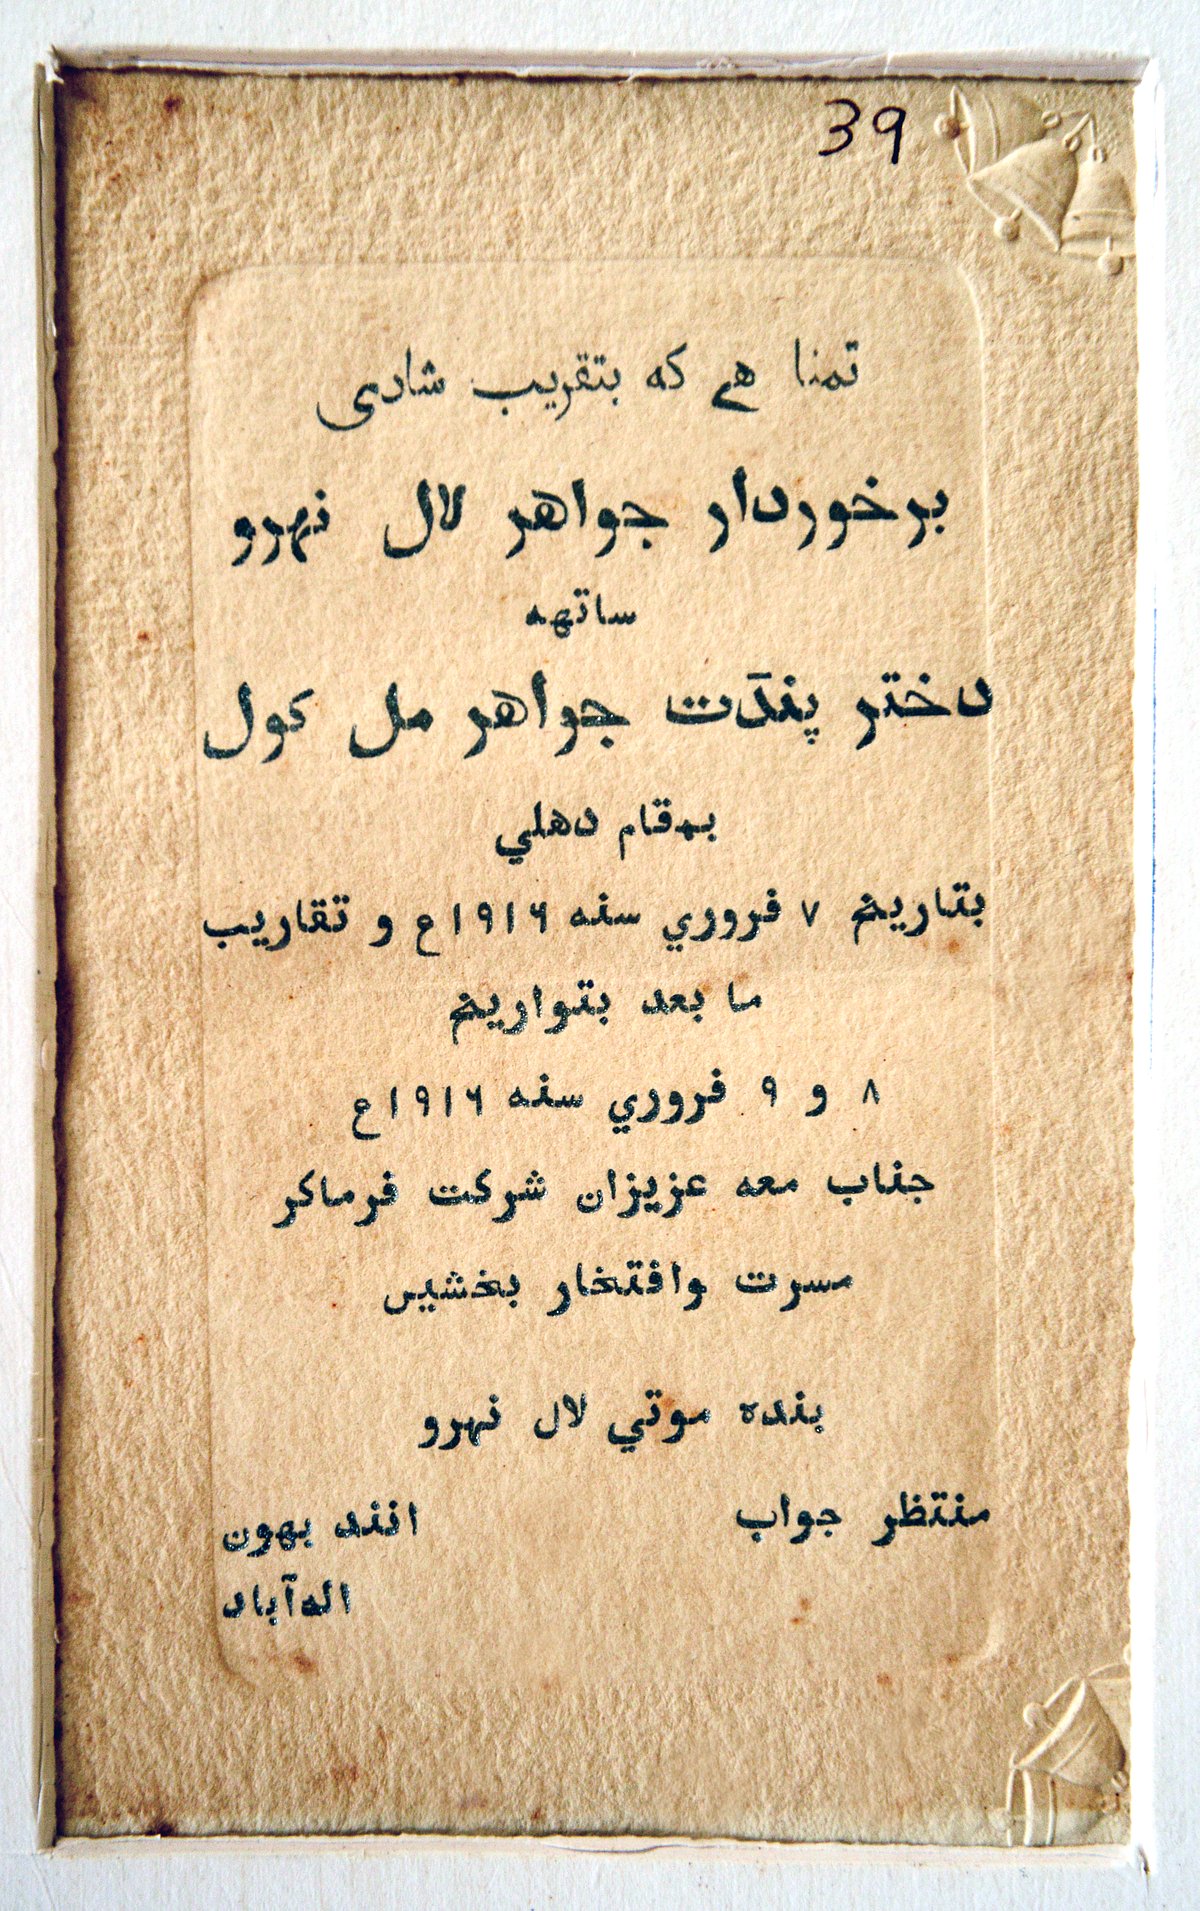 39
تمنا هے که بتقریب شادی
برخوردار جواهر لال نهرو
ساتهه
دختر پنڈت جواهر مل کول
بمقام دهلي
بتاریخ ۷ فروري سنه ۱۹۱۶ع و تقاریب
ما بعد بتواریخ
۸ و ۹ فروري سنه ۱۹۱۶ع
جناب معه عزیزان شرکت فرماکر
مسرت وافتخار بخشیں
بنده موتي لال نهرو
منتظر جواب انند بهون
اله‌آباد